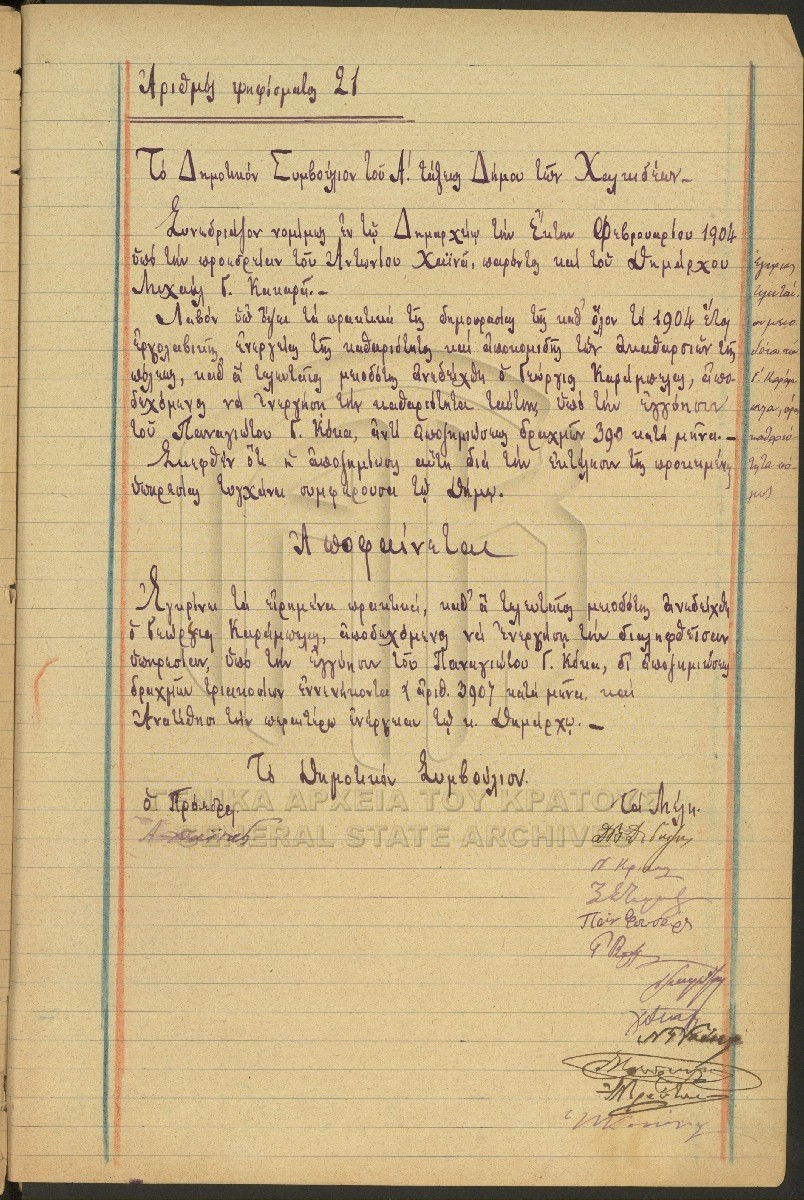 Ἀριθμός ψηφίσματος 21
Τό Δημοτικόν Συμβούλιον τοῦ Α΄. τάξεως Δήμου τῶν Χαλκιδέων.–
Συνεδριάσαν νομίμως ἐν τῷ Δημαρχείῳ τήν ἕκτην Φεβρουαρίου 1904
ὑπό τήν προεδρείαν τοῦ Ἀντωνίου Χαϊνᾶ, παρόντος καί τοῦ δημάρχου
Μιχαήλ Γ. Κακαρᾶ.–
Λαβόν ὑπ' ὄψει τά πρακτικά τῆς δημοπρασίας τῆς καθ' ὅλον τό 1904 ἔτος
ἐργολαβικῆς ἐνεργείας τῆς καθαριότητος καί ἀποκομιδῆς τῶν ἀκαθαρσιῶν τῆς
πόλεως, καθ' ἅ τελευταῖος μειοδότης ἀνεδείχθη ὁ Γεώργιος Καράμπελας, ἀπο-
δεχόμενος νά ἐνεργήσῃ τήν καθαριότητα ταύτην, ὑπό τήν ἐγγύησιν
τοῦ Παναγιώτου Γ. Κόκα, ἀντί ἀποζημιώσεως δραχμῶν 390 κατά μῆνα.–
Σκεφθέν ὅτι ἡ ἀποζημίωσις αὕτη διά τήν ἐκτέλεσιν τῆς προκειμένης
ὑπηρεσίας τυγχάνει συμφέρουσα τῷ δήμῳ.
Ἀποφαίνεται
Ἐγκρίνει τά εἰρημένα πρακτικά, καθ' ἅ τελευταῖος μειοδότης ἀνεδείχθη
ὁ Γεώργιος Καράμπελας, ἀποδεχόμενος νά ἐνεργήσῃ τήν διαληφθεῖσαν
ὑπηρεσίαν, ὑπό τήν ἐγγύησιν τοῦ Παναγιώτου Γ. Κόκα, δι' ἀποζημιώσεως
δραχμῶν τριακοσίων ἐννενήκοντα (ἀριθ. 390) κατά μῆνα, καί
Ἀνατίθησι τήν περαιτέρω ἐνέργειαν τῷ κ. δημάρχῳ.–
Τό δημοτικόν Συμβούλιον.
Ὁ Πρόεδρος
Τά Μέλη.
Ἐγκρίσεις
τελευταί-
ου μειο-
δότου
Γ. Καράμ-
πελα,
καθαριό-
τητα πό-
λεως
ΓΕΝΙΚΑ ΑΡΧΕΙΑ ΤΟΥ ΚΡΑΤΟΥΣ
GENERAL STATE ARCHIVES